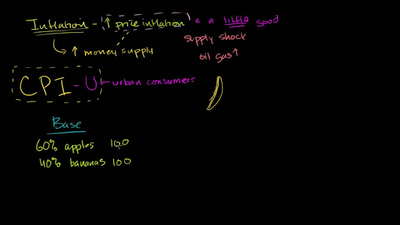 Inflation - ↑ price inflation ← a little good
↳ ↑ money supply
supply shock
oil gas ↑
CPI - U ← urban consumers
Base
60% apples 100
40% bananas 100